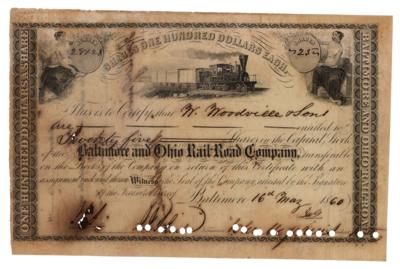 SHARES ONE HUNDRED DOLLARS EACH.
ONE HUNDRED DOLLARS A SHARE
BALTIMORE AND OHIO RAIL ROAD
This is to Certify, that W. Woodville & Sons
are entitled to
Shares in the Capital Stock
of the Baltimore and Ohio Rail Road Company, transferable
on the Books of the Company on return of this Certificate with an
assignment endorsed thereon Witness the Seal of the Company, attested by the Signature
of the Treasurer thereof Baltimore 16th May 1860